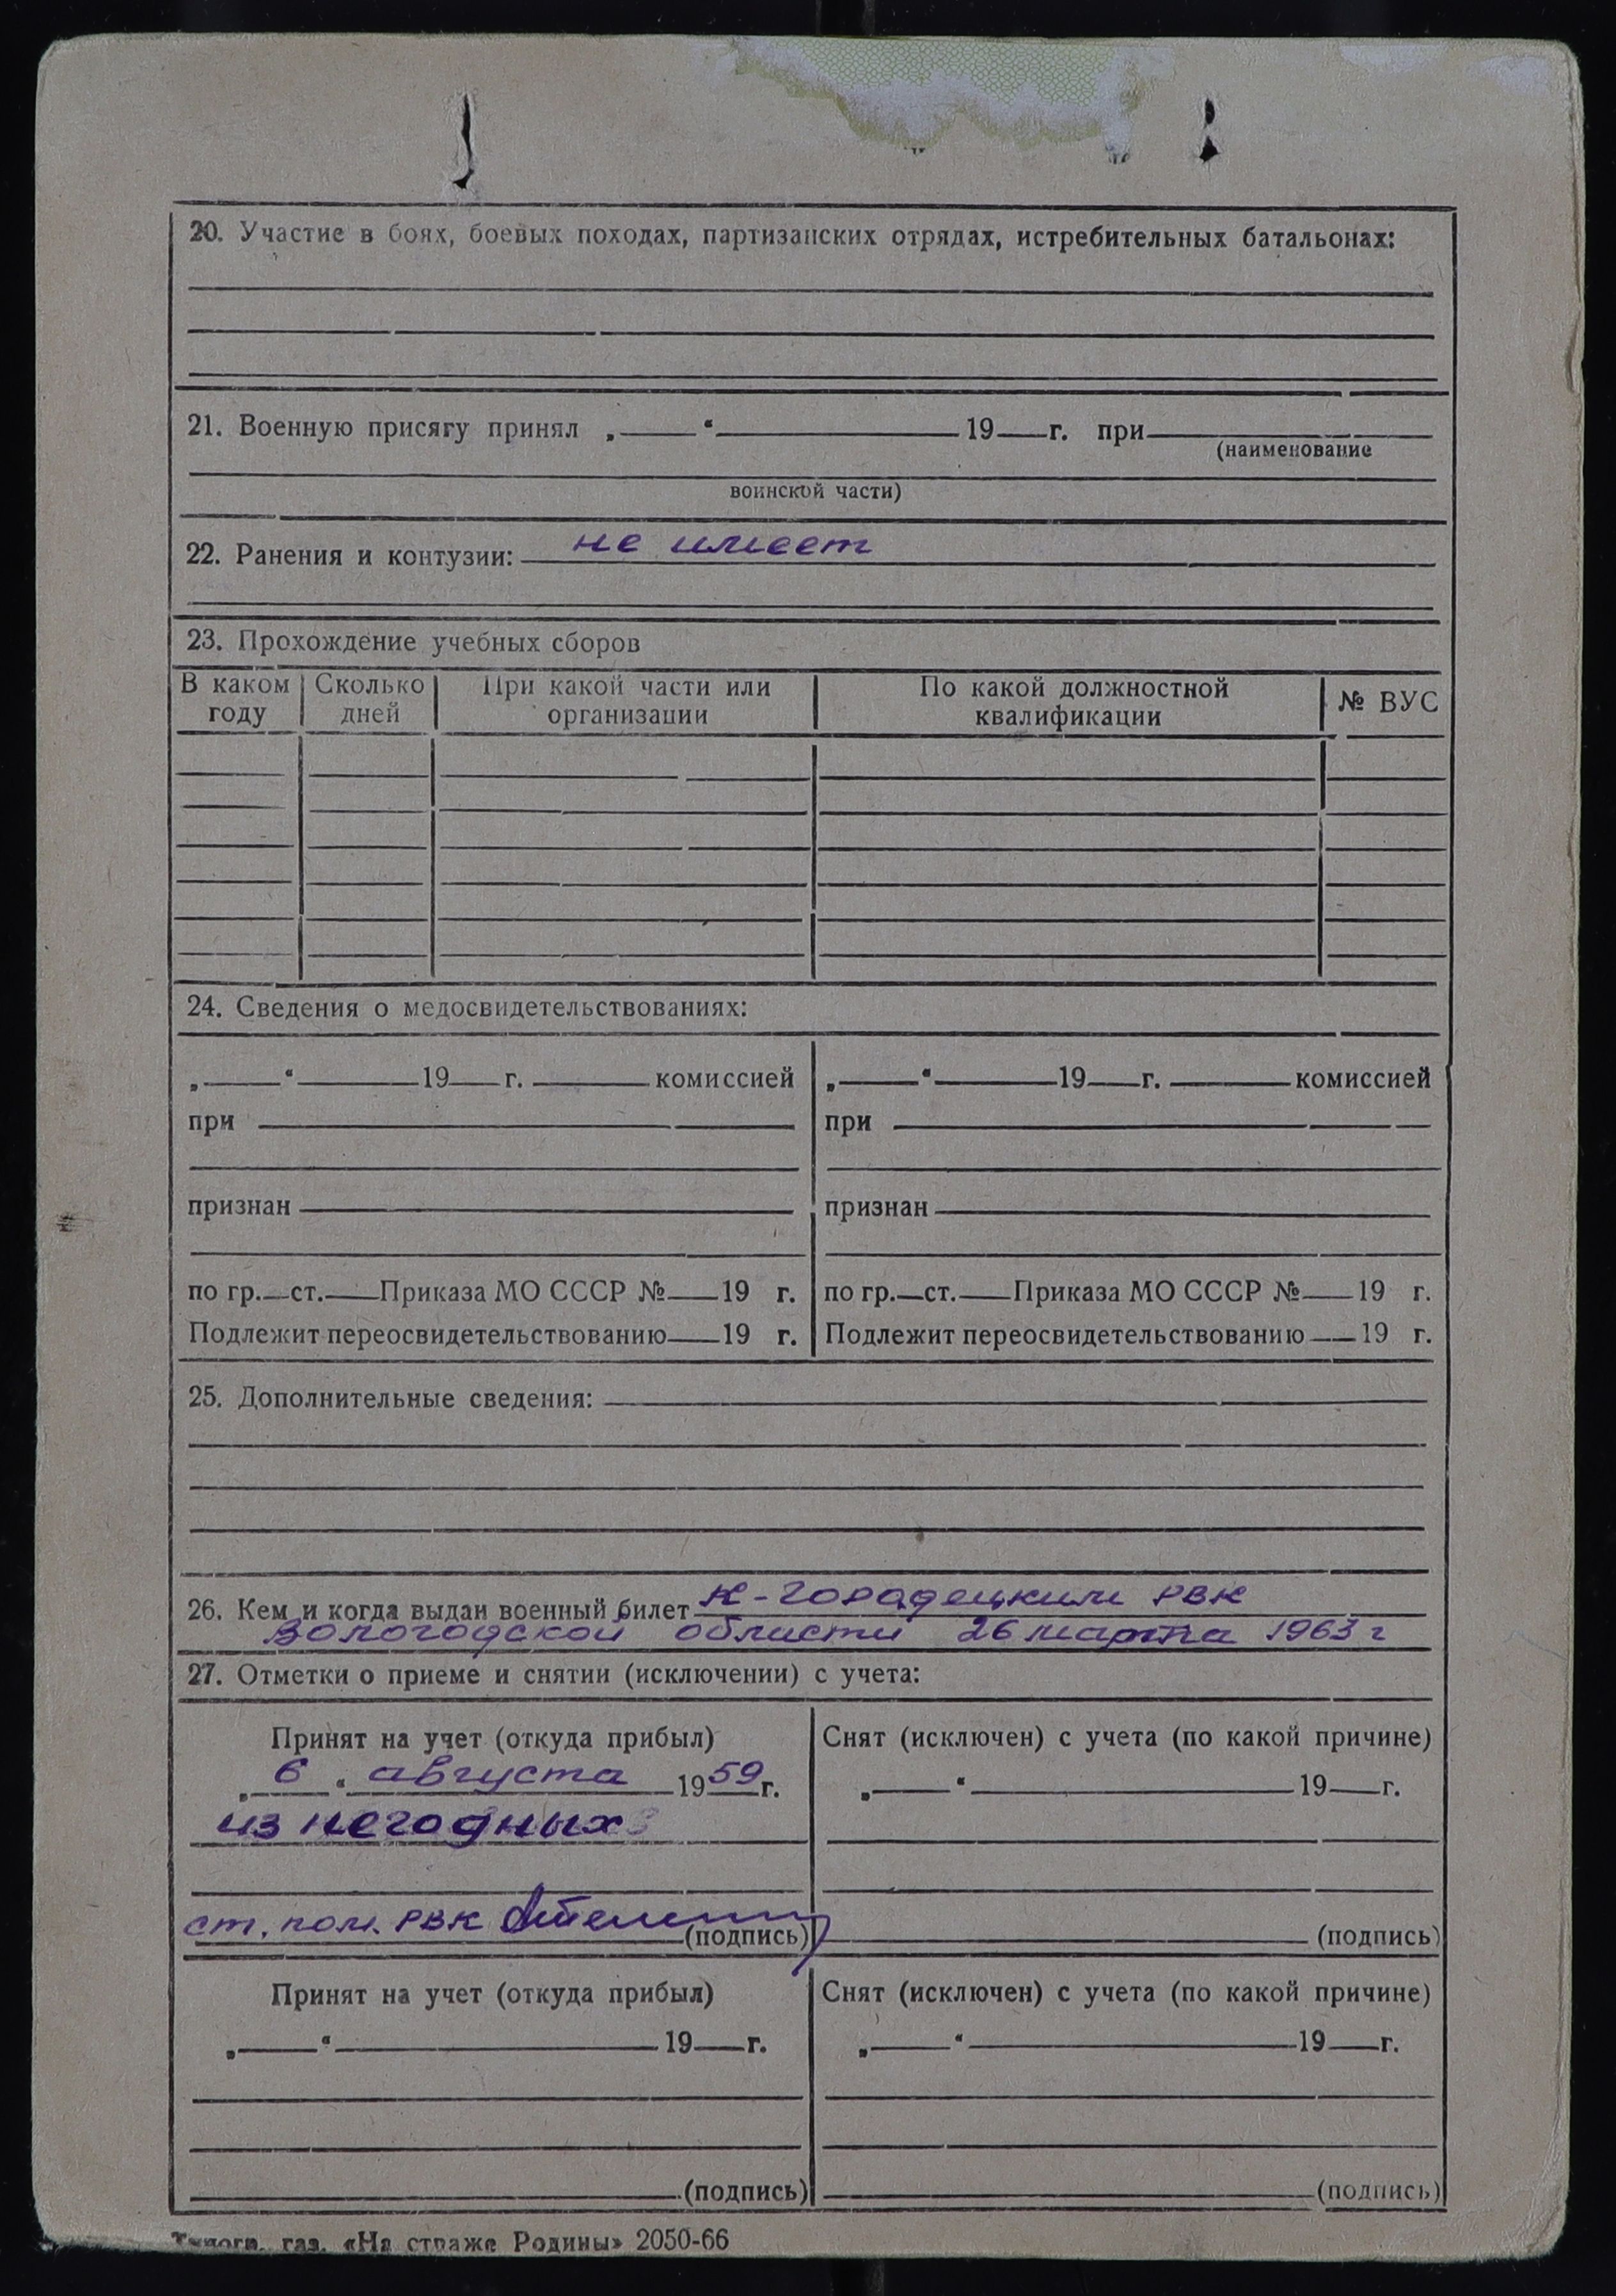 20. Участие в боях, боевых походах, партизанских отрядах, истребительных батальонах:
21. Военную присягу принял „ “ 19 г. при
(наименование
воинской части)
22. Ранения и контузии: не имеет
23. Прохождение учебных сборов
В каком году Сколько дней При какой части или организации По какой должностной квалификации № ВУС
24. Сведения о медосвидетельствованиях:
„ “ 19 г. комиссией „ “ 19 г. комиссией
при при
признан признан
по гр. ст. Приказа МО СССР № 19 г. по гр. ст. Приказа МО СССР № 19 г.
Подлежит переосвидетельствованию 19 г. Подлежит переосвидетельствованию 19 г.
25. Дополнительные сведения:
26. Кем и когда выдан военный билет К-Городецким РВК
Вологодской области 26 марта 1963 г
27. Отметки о приеме и снятии (исключении) с учета:
Принят на учет (откуда прибыл) Снят (исключен) с учета (по какой причине)
„ 6 “ августа 1959 г. „ “ 19 г.
из негодных
ст. пом. РВК (подпись) (подпись)
Принят на учет (откуда прибыл) Снят (исключен) с учета (по какой причине)
„ “ 19 г. „ “ 19 г.
(подпись) (подпись)
Типогр. газ. «На страже Родины» 2050-66